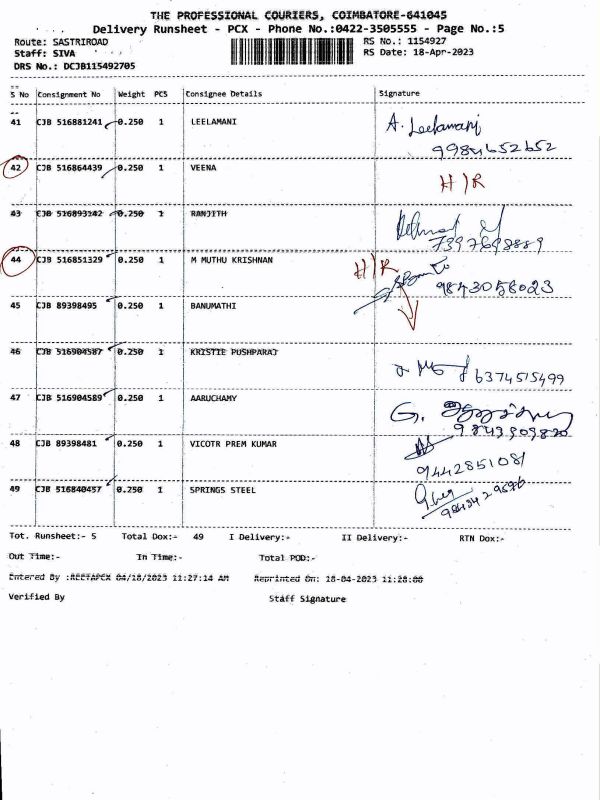 THE PROFESSIONAL COURIERS, COIMBATORE-641045
Delivery Runsheet - PCX - Phone No.:0422-3505555 - Page No.:5
Route: SASTRIROAD RS No.: 1154927
Staff: SIVA RS Date: 18-Apr-2023
DRS No.: DCJB115492705
S No Consignment No Weight PCS Consignee Details Signature
41 CJB 516881241 0.250 1 LEELAMANI A. Leelamani
9984652652
42 CJB 516864439 0.250 1 VEENA H/R
43 CJB 516893142 0.250 1 RANJITH
7397698889
44 CJB 516851329 0.250 1 M MUTHU KRISHNAN H/R
9843058023
45 CJB 89398495 0.250 1 BANUMATHI
46 CJB 516904587 0.250 1 KRISTIE PUSHPARAJ
6374515499
47 CJB 516904589 0.250 1 AARUCHAMY G.
9843909820
48 CJB 89398481 0.250 1 VICOTR PREM KUMAR
9442851081
49 CJB 516840457 0.250 1 SPRINGS STEEL
Tot. Runsheet:- 5 Total Dox:- 49 I Delivery:- II Delivery:- RTN Dox:-
Out Time:- In Time:- Total POD:-
Entered By :REETAPCX 04/18/2023 11:27:14 AM Reprinted On: 18-04-2023 11:28:00
Verified By Staff Signature